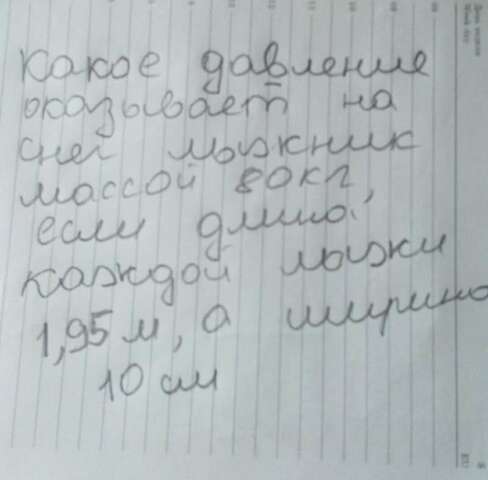 Какое давление
оказывает на
снег лыжник
массой 80кг,
если длина
каждой лыжи
1,95 м, а ширина
10 см